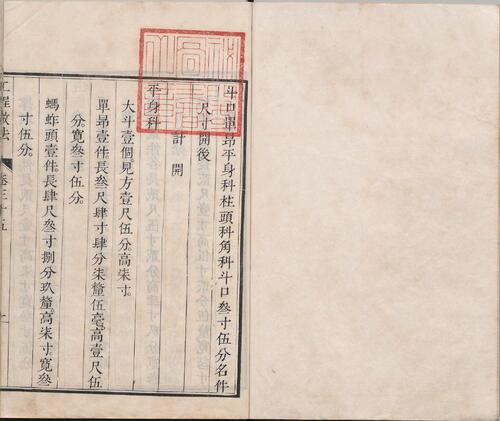 斗口單昂平身科柱頭科角科斗口叄寸伍分名件
尺寸開後
計開
平身科
大斗壹個見方壹尺伍分高柒寸。
單昂壹件長叄尺肆寸肆分柒釐伍毫高壹尺伍
分寬叄寸伍分。
螞蚱頭壹件長肆尺叄寸捌分玖釐高柒寸寬叄
寸伍分。
工程做法 卷三十五 一